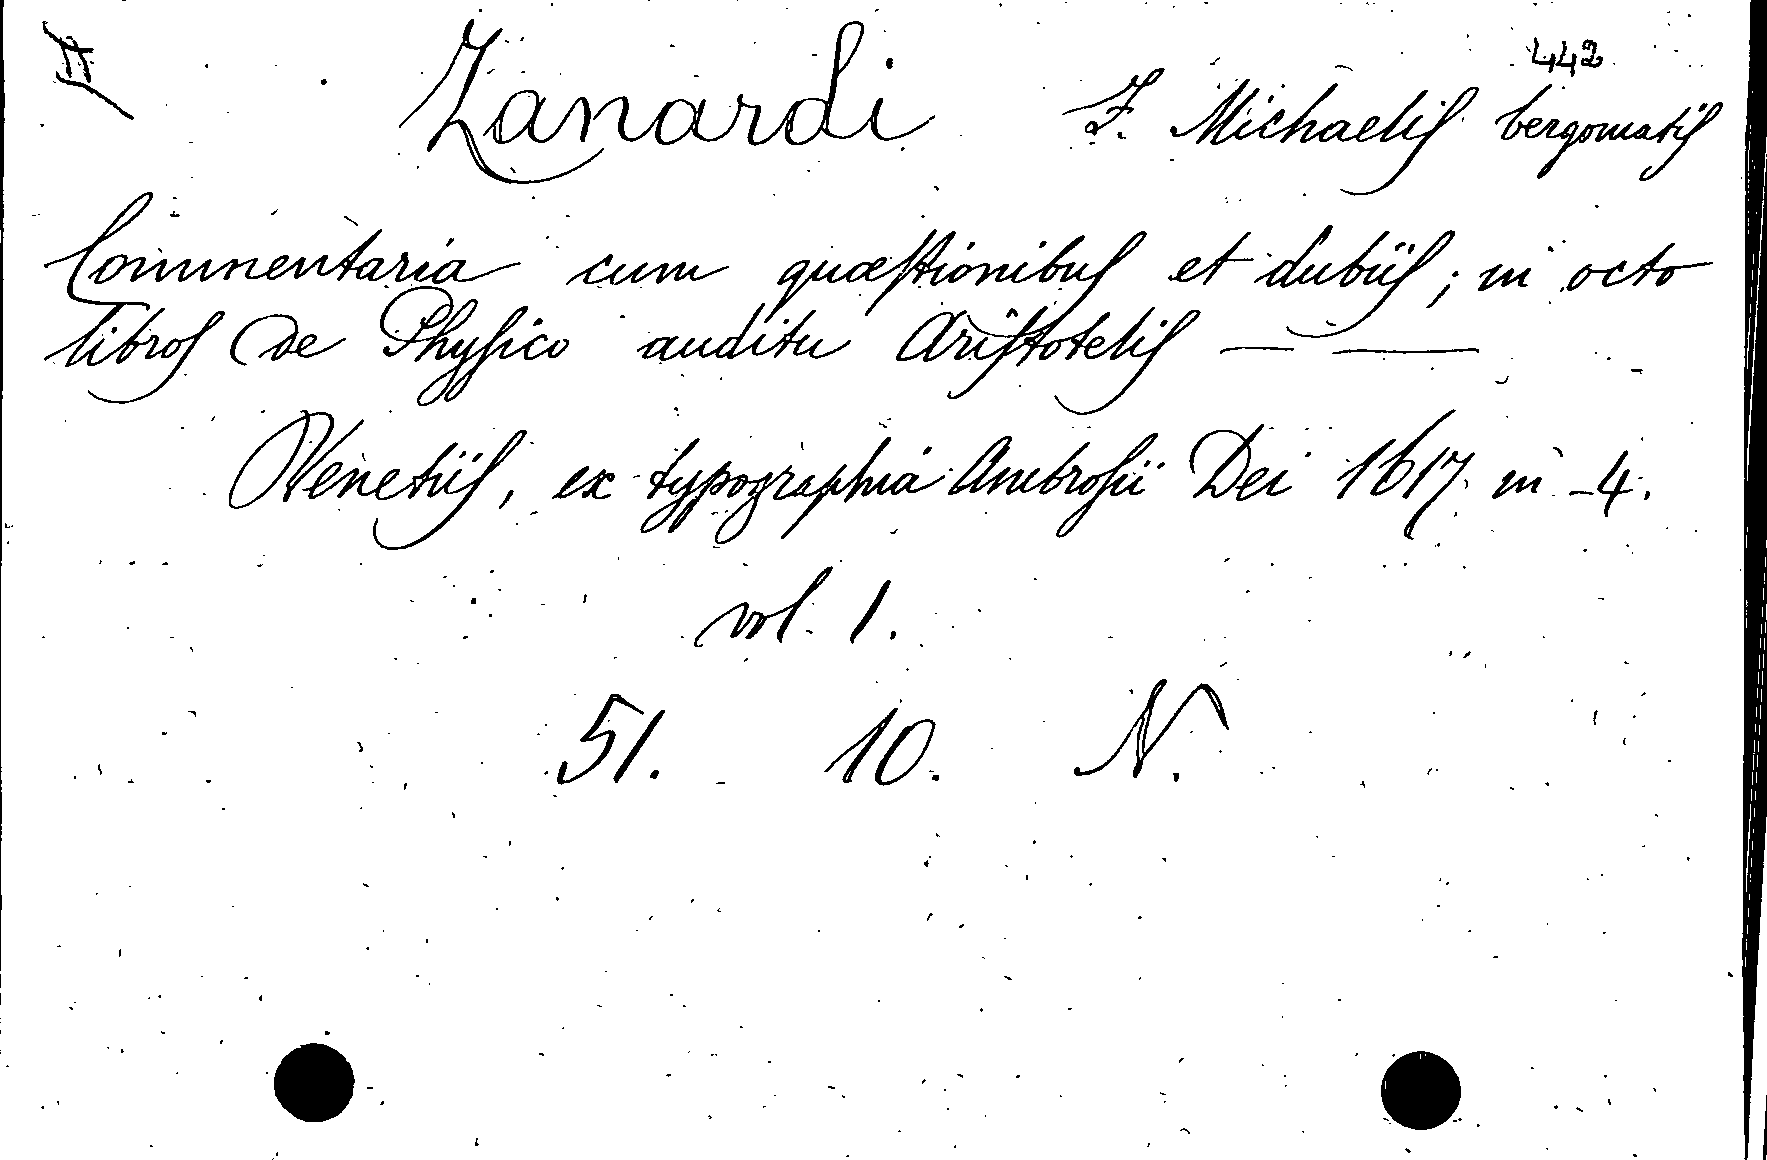 II
442
Zanardi F. Michaelis bergomatis
Commentaria cum quæstionibus et dubiis; in octo
libros de Physico auditu Aristotelis — —
Venetiis, ex typographia Ambrosii Dei 1617 in -4.
vol. 1.
51. 10. N.